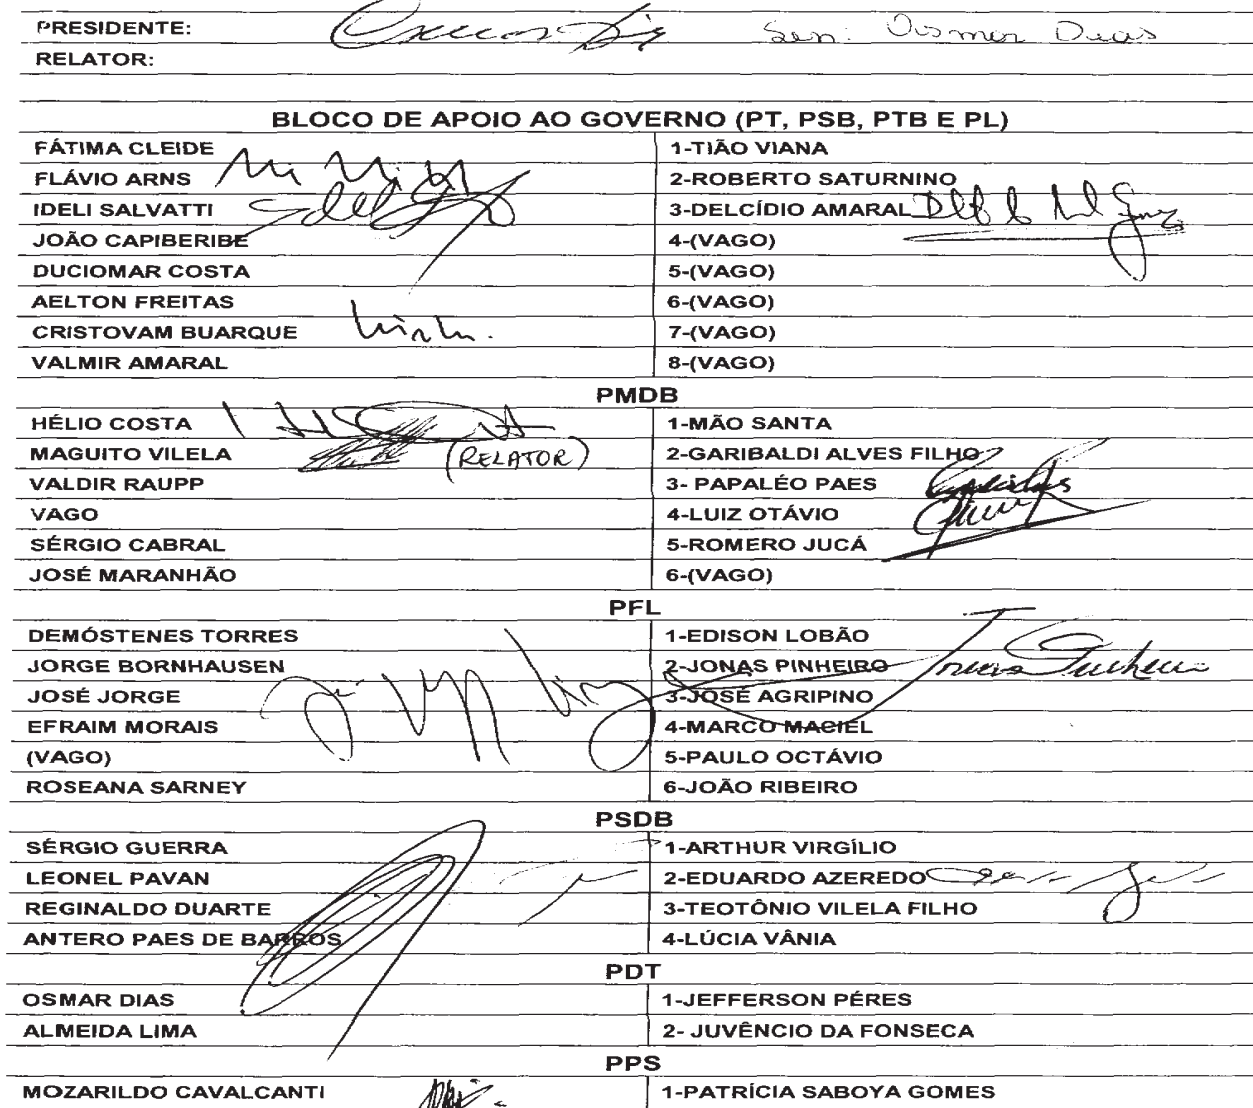 PRESIDENTE: Sen: Osmar Dias
RELATOR:
BLOCO DE APOIO AO GOVERNO (PT, PSB, PTB E PL)
FÁTIMA CLEIDE 1-TIÃO VIANA
FLÁVIO ARNS 2-ROBERTO SATURNINO
IDELI SALVATTI 3-DELCÍDIO AMARAL
JOÃO CAPIBERIBE 4-(VAGO)
DUCIOMAR COSTA 5-(VAGO)
AELTON FREITAS 6-(VAGO)
CRISTOVAM BUARQUE 7-(VAGO)
VALMIR AMARAL 8-(VAGO)
PMDB
HÉLIO COSTA 1-MÃO SANTA
MAGUITO VILELA (RELATOR) 2-GARIBALDI ALVES FILHO
VALDIR RAUPP 3- PAPALÉO PAES
VAGO 4-LUIZ OTÁVIO
SÉRGIO CABRAL 5-ROMERO JUCÁ
JOSÉ MARANHÃO 6-(VAGO)
PFL
DEMÓSTENES TORRES 1-EDISON LOBÃO
JORGE BORNHAUSEN 2-JONAS PINHEIRO Jonas Pinheiro
JOSÉ JORGE 3-JOSÉ AGRIPINO
EFRAIM MORAIS 4-MARCO MACIEL
(VAGO) 5-PAULO OCTÁVIO
ROSEANA SARNEY 6-JOÃO RIBEIRO
PSDB
SÉRGIO GUERRA 1-ARTHUR VIRGÍLIO
LEONEL PAVAN 2-EDUARDO AZEREDO
REGINALDO DUARTE 3-TEOTÔNIO VILELA FILHO
ANTERO PAES DE BARROS 4-LÚCIA VÂNIA
PDT
OSMAR DIAS 1-JEFFERSON PÉRES
ALMEIDA LIMA 2- JUVÊNCIO DA FONSECA
PPS
MOZARILDO CAVALCANTI 1-PATRÍCIA SABOYA GOMES